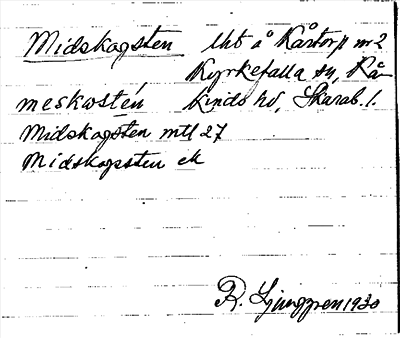 Midskogsten lht å Kårtorp nr 2
Kyrkefalla sn, Kå-
meskosten kinds hd, Skarab. l.
Midskogsten mtl 27
Midskogssten ek
R. Ljunggren 1930